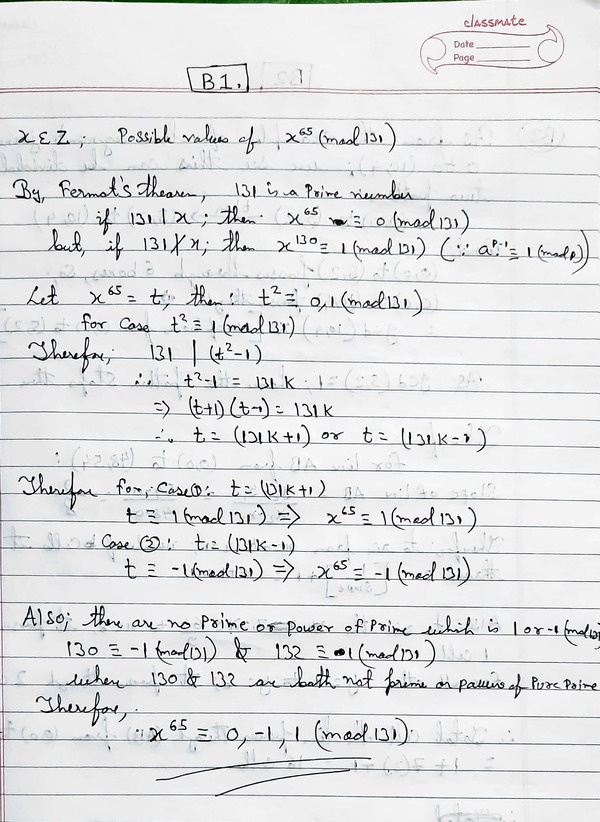 classmate
Date
Page
B1.
x ∈ Z; Possible values of x^65 (mod 131)
By, Fermat's theorem, 131 is a Prime number
if 131 | x; then x^65 ≡ 0 (mod 131)
but, if 131 ∤ x; then x^130 ≡ 1 (mod 131) (∵ a^p-1 ≡ 1 (mod p))
Let x^65 = t; then: t² ≡ 0, 1 (mod 131)
for case t² ≡ 1 (mod 131)
Therefore; 131 | (t²-1)
∴ t²-1 = 131 K
=> (t+1) (t-1) = 131K
∴ t = (131K+1) or t = (131K-1)
Therefore for, Case ①: t = (131K+1)
t ≡ 1 (mod 131) => x^65 ≡ 1 (mod 131)
Case ②: t = (131K-1)
t ≡ -1 (mod 131) => x^65 ≡ -1 (mod 131)
Also; there are no Prime or power of Prime which is 1 or -1 (mod 131)
130 ≡ -1 (mod 131) & 132 ≡ 1 (mod 131)
where 130 & 132 are both not prime or powers of Pure Prime
Therefore,
∴ x^65 ≡ 0, -1, 1 (mod 131).